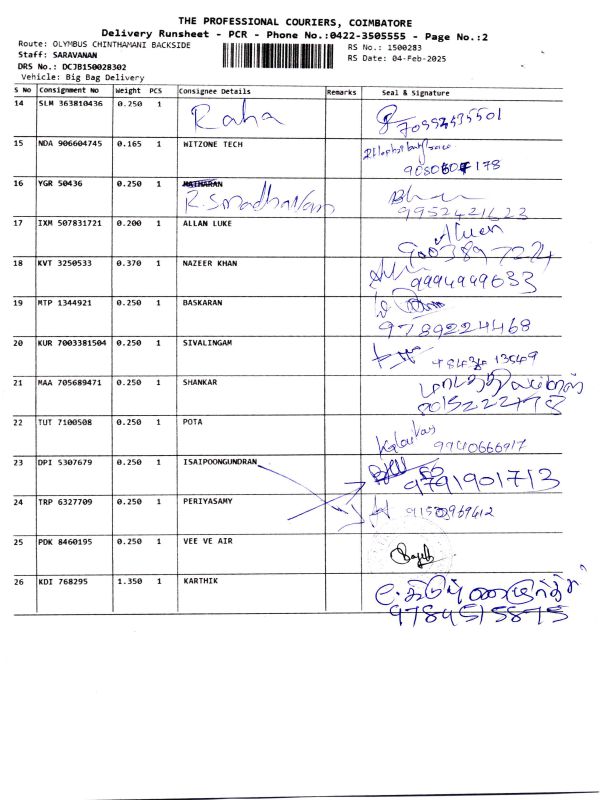 THE PROFESSIONAL COURIERS, COIMBATORE
Delivery Runsheet - PCR - Phone No.:0422-3505555 - Page No.:2
Route: OLYMBUS CHINTHAMANI BACKSIDE
RS No.: 1500283
Staff: SARAVANAN
RS Date: 04-Feb-2025
DRS No.: DCJB150028302
Vehicle: Big Bag Delivery
S No Consignment No Weight PCS Consignee Details Remarks Seal & Signature
14 SLM 363810436 0.250 1 Raha
15 NDA 906604745 0.165 1 WITZONE TECH
16 YGR 50436 0.250 1 MATHARAN
R.S madhavan 9952421623
17 IXM 507831721 0.200 1 ALLAN LUKE
18 KVT 3250533 0.370 1 NAZEER KHAN 9994949633
19 MTP 1344921 0.250 1 BASKARAN
9789224468
20 KUR 7003381504 0.250 1 SIVALINGAM
21 MAA 705689471 0.250 1 SHANKAR
8015222778
22 TUT 7100508 0.250 1 POTA
9940666917
23 DPI 5307679 0.250 1 ISAIPOONGUNDRAN
9791901713
24 TRP 6327709 0.250 1 PERIYASAMY
25 PDK 8460195 0.250 1 VEE VE AIR
26 KDI 768295 1.350 1 KARTHIK
9784515875